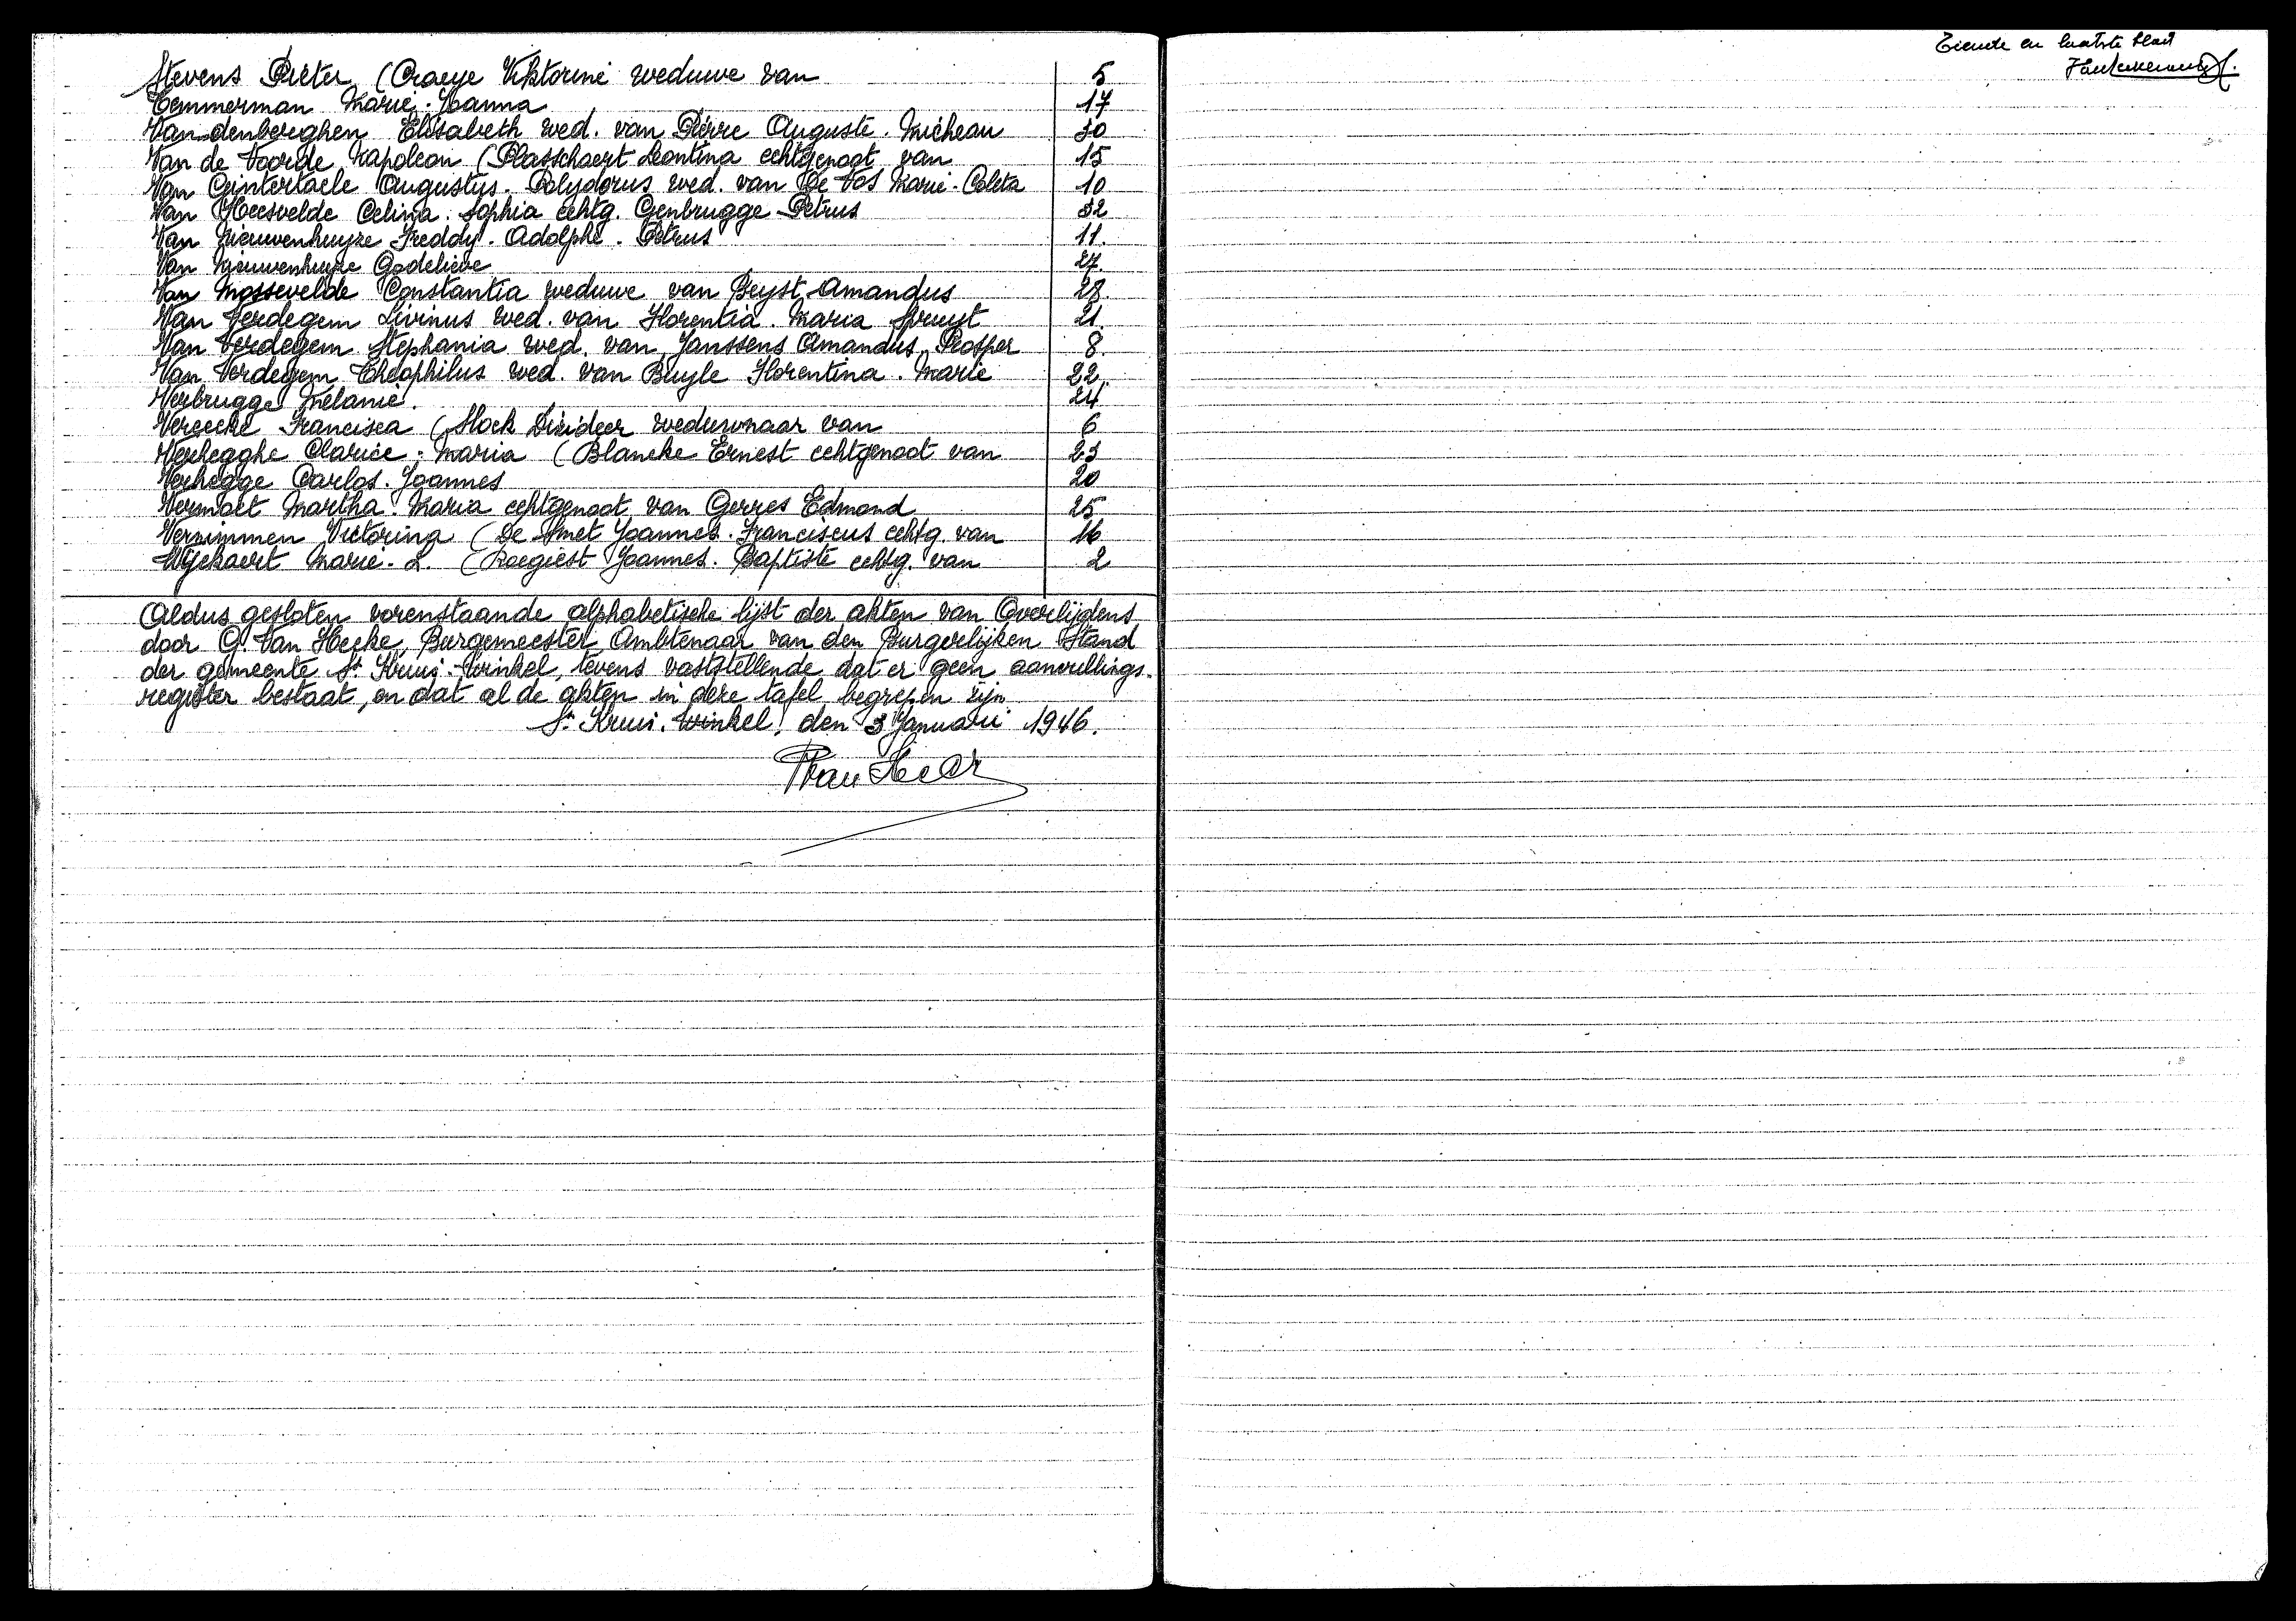 Stevens Pieter (Craeye Viktorine weduwe van 5
Temmerman Marie-Joanna 17
Van denberghen Elisabeth wed. van Pierre Auguste Micheau 30
Van de Voorde Napoleon (Plasschaert Leontina echtgenoot van 15
Van Ginterlaele Augustus-Polydorus wed. van De Vos Marie-Coleta 10
Van Heesvelde Celina-Sophia echtg. Genbrugge Petrus 32
Van Nieuwenhuyze Freddy. Adolphe. Petrus 11.
Van Nieuwenhuyze Godelieve 27.
Van Mossevelde Constantia weduwe van Beyst Amandus 28.
Van Verdegem Livinus wed. van Florentia. Maria Spruyt 21.
Van Verdegem Stephania wed. van Janssens Amandus, Prosper 8.
Van Verdegem Théophilus wed. van Buyle Florentina. Marie 22.
Verbrugge Mélanie. 24
Vereecke Francisca (Stock Desideer weduwnaar van 6
Verhegghe Clarice. Maria (Blancke Ernest echtgenoot van 23
Verhegge Carlos. Joannes 20
Vermaet Martha. Maria echtgenoot van Gerres Edmond 25
Vernimmen Victorina (De Smet Joannes. Franciscus echtg. van 16
Wyckaert Marie. L. (Roegiest Joannes. Baptiste echtg. van 2
Aldus gesloten vorenstaande alphabetische lijst der akten van Overlijdens
door G. Van Hecke, Burgemeester Ambtenaar van den Burgerlijken Stand
der gemeente St. Kruis-Winkel, tevens vaststellende dat er geen aanvullings-
register bestaat, en dat al de akten in deze tafel begrepen zijn
St. Kruis-Winkel, den 3 Januari 1946.
Tiende en laatste blad